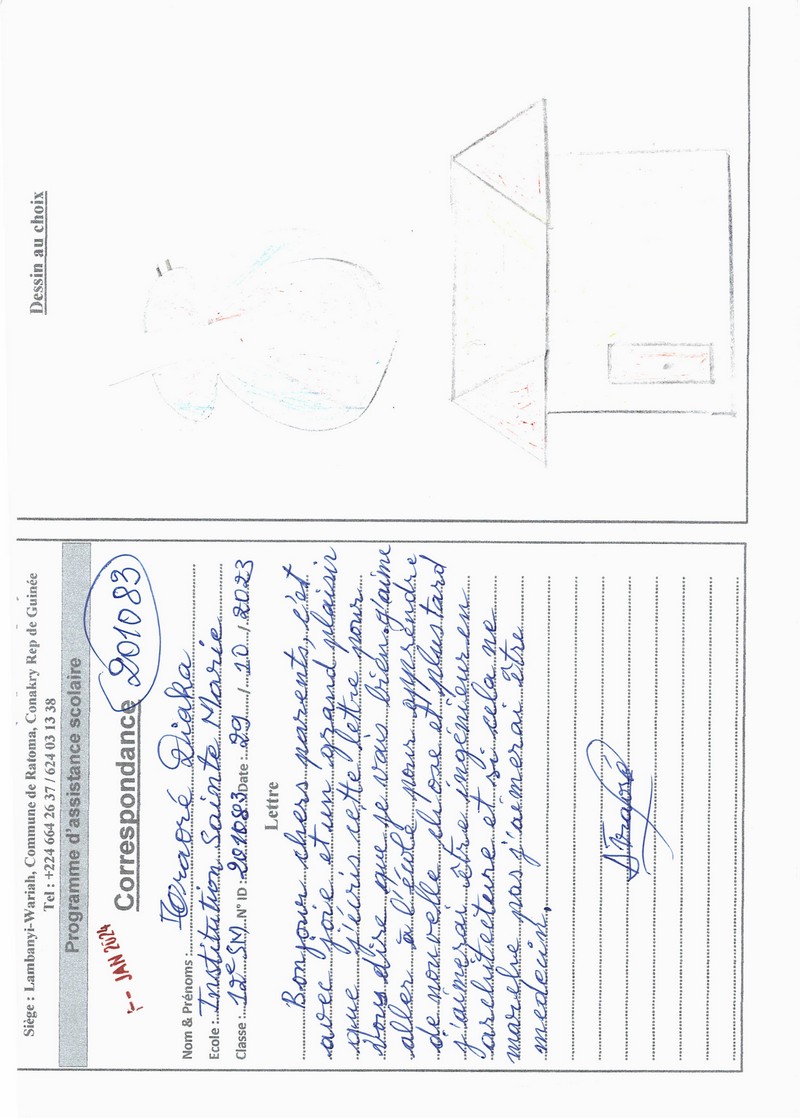 Siège : Lambanyi-Wariah, Commune de Ratoma, Conakry Rep de Guinée
Tel : +224 664 26 37 / 624 03 13 38
Programme d'assistance scolaire
-- JAN 2024
Correspondance 201083
Nom & Prénoms : Traoré Diaka
Ecole : Institution Sainte Marie
Classe : 12e SM N° ID : 201083 Date : 29 / 10 / 2023
Lettre
Bonjour chers parents, c'est
avec joie et un grand plaisir
que j'écris cette lettre pour
vous dire que je vais bien. J'aime
aller à l'école pour apprendre
de nouvelle chose et plus tard
j'aimerai être ingénieur en
architecture et si cela ne
marche pas j'aimerai être
medecin.
Dessin au choix